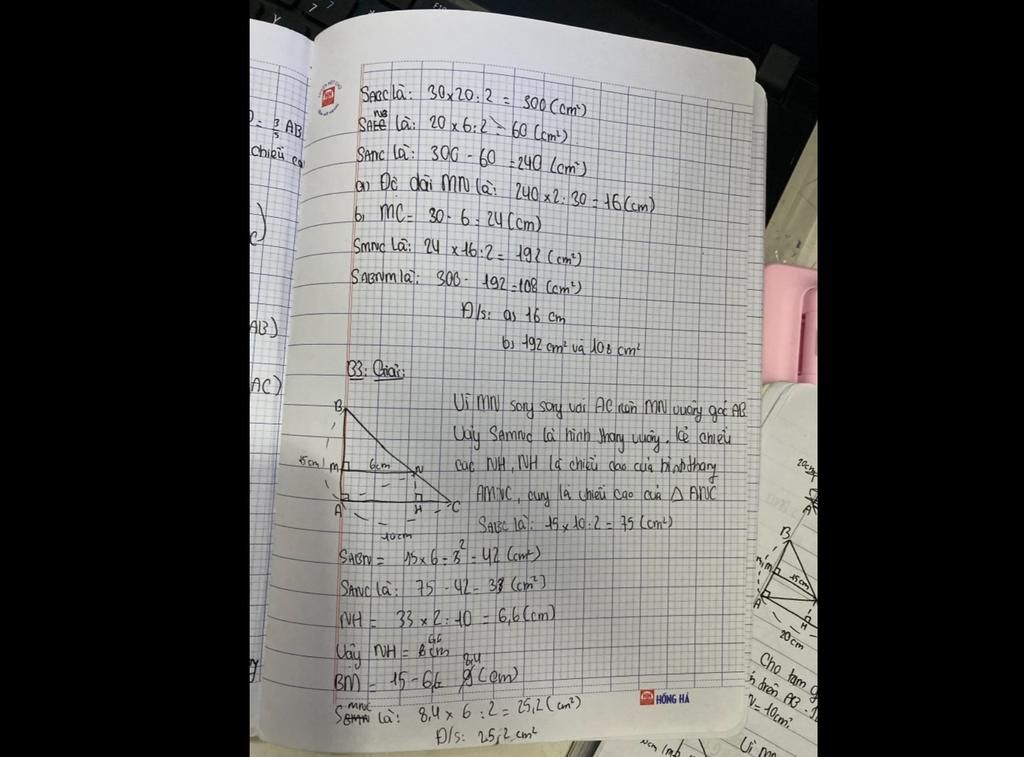 SABC là: 30 x 20 : 2 = 300 (cm²)
là: 20 x 6 : 2 = 60 (cm²)
SANC là: 300 - 60 = 240 (cm²)
a) Độ dài MN là: 240 x 2 : 30 = 16 (cm)
b, MC = 30 - 6 = 24 (cm)
SMNC là: 24 x 16 : 2 = 192 (cm²)
SABNM là: 300 - 192 = 108 (cm²)
Đ/s: a) 16 cm
b) 192 cm² và 108 cm²
B3: Giải:
Vì MN song song với AC nên MN vuông góc AB
Vậy SAMNC là hình thang vuông. Kẻ chiều
cao NH, NH là chiều cao của hình thang
AMNC, cũng là chiều cao của △ ANC
SABC là: 15 x 10 : 2 = 75 (cm²)
B
15cm
M
6cm
N
A
H
C
10cm
SABN = 15 x 6 : 2 = 42 (cm²)
SANC là: 75 - 42 = 33 (cm²)
NH = 33 x 2 : 10 = 6,6 (cm)
Vậy NH = 6,6 cm
BM = 15 - 6,6 8,4 (cm)
là: 8,4 x 6 : 2 = 25,2 (cm²)
Đ/s: 25,2 cm²
HỒNG HÀ
= 3/5 AB
chiều ca
AB)
AC)
B
M
15cm
A
H
20cm
Cho tam g
trên AB.
= 10cm.
Vì m